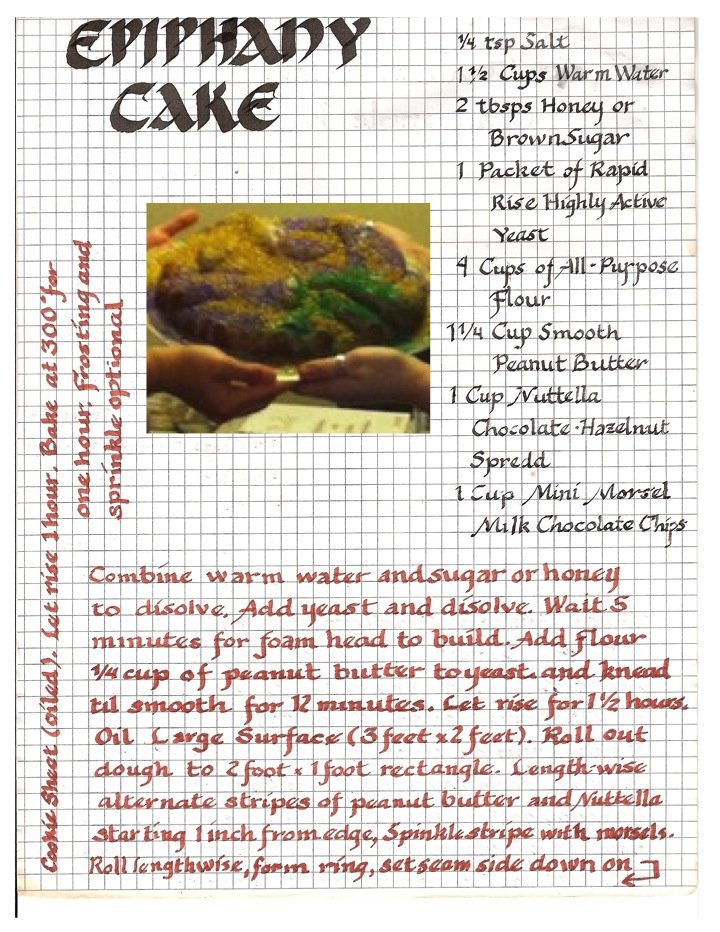 EPIPHANY
CAKE
1/4 tsp Salt
1 1/2 Cups Warm Water
2 tbsps Honey or
Brown Sugar
1 Packet of Rapid
Rise Highly Active
Yeast
4 Cups of All-Purpose
Flour
1 1/4 Cup Smooth
Peanut Butter
1 Cup Nuttella
Chocolate-Hazelnut
Spredd
1 Cup Mini Morsel
Milk Chocolate Chips
Combine warm water and sugar or honey
to disolve. Add yeast and disolve. Wait 5
minutes for foam head to build. Add flour
1/4 cup of peanut butter to yeast. and knead
til smooth for 12 minutes. Let rise for 1 1/2 hours.
Oil Large Surface (3 feet x 2 feet). Roll out
dough to 2 foot x 1 foot rectangle. Length-wise
alternate stripes of peanut butter and Nuttella
starting 1 inch from edge, Spinkle stripe with morsels.
Roll lengthwise, form ring, set seam side down on
Cookie Sheet (oiled). Let rise 1 hour. Bake at 300° for
one hour. Frosting and
sprinkle optional